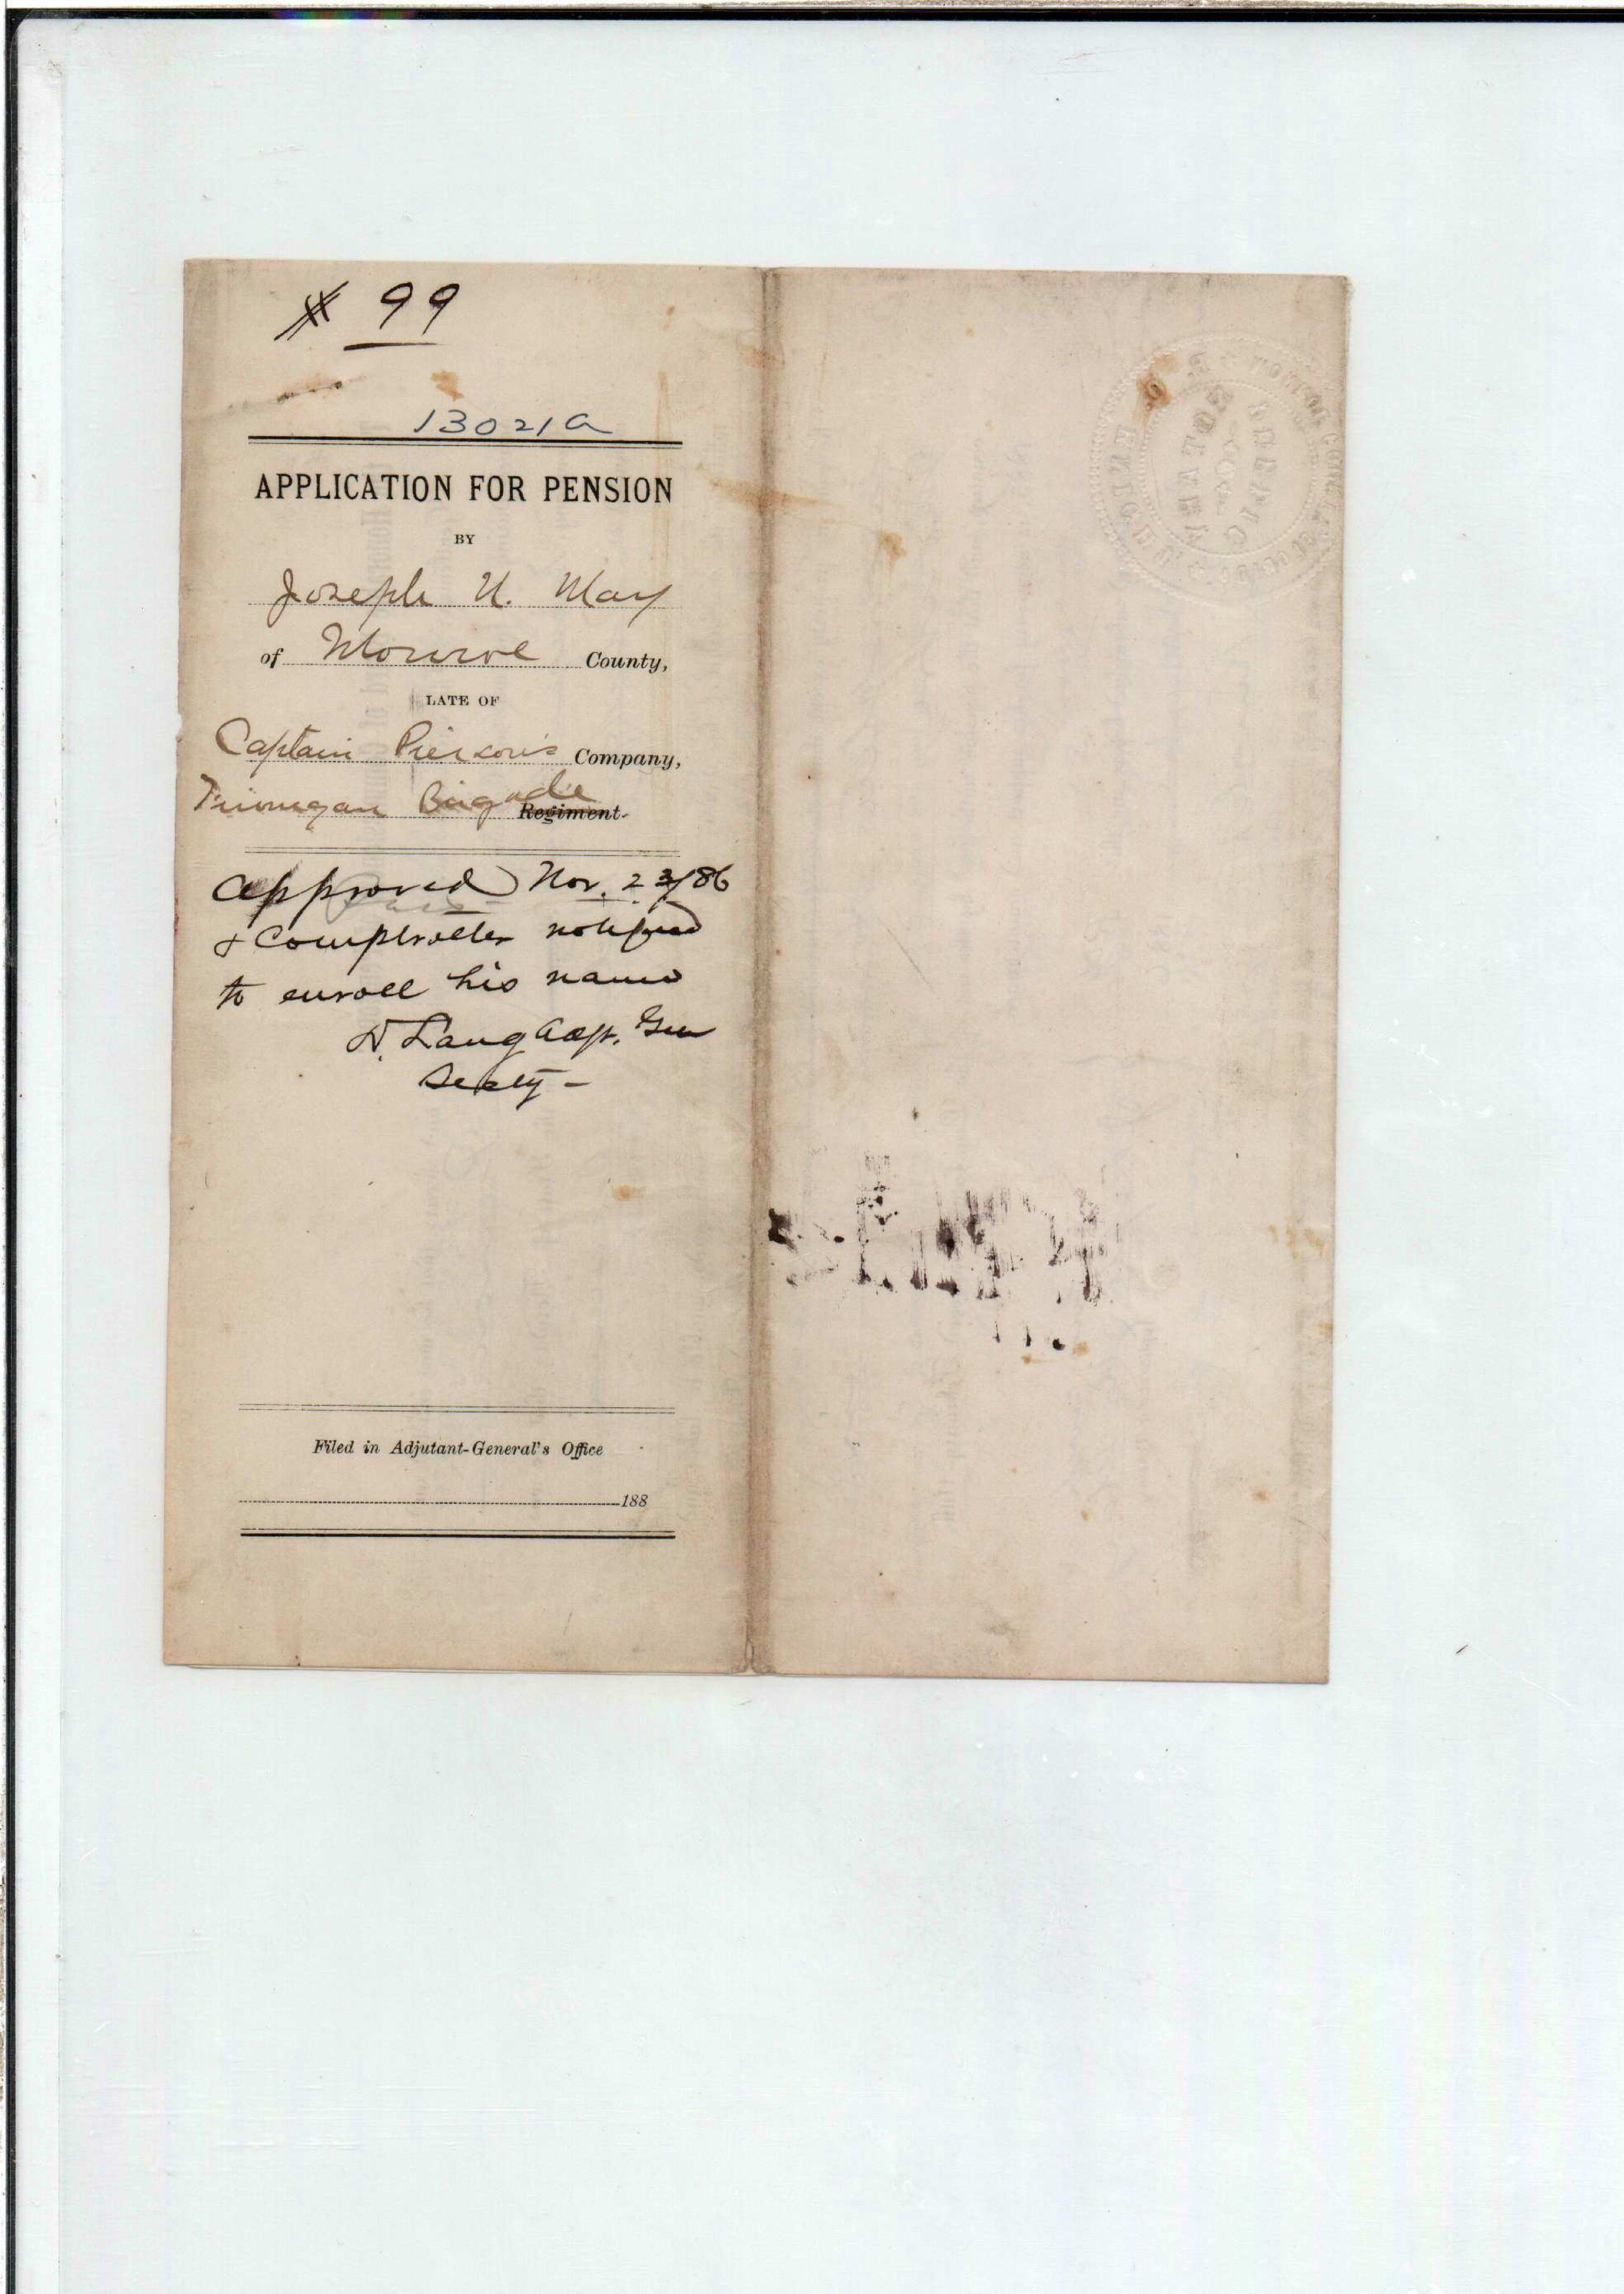 # 99
13021A
APPLICATION FOR PENSION
BY
Joseph N. May
of Monroe County,
LATE OF
Captain Pierson's Company,
Finnegan Brigade Regiment.
Approved Nov. 23/86
& Comptroller notified
to enroll his name
D. Lang Adjt. Gen
Secty -
Filed in Adjutant-General's Office
188
PUBLIC